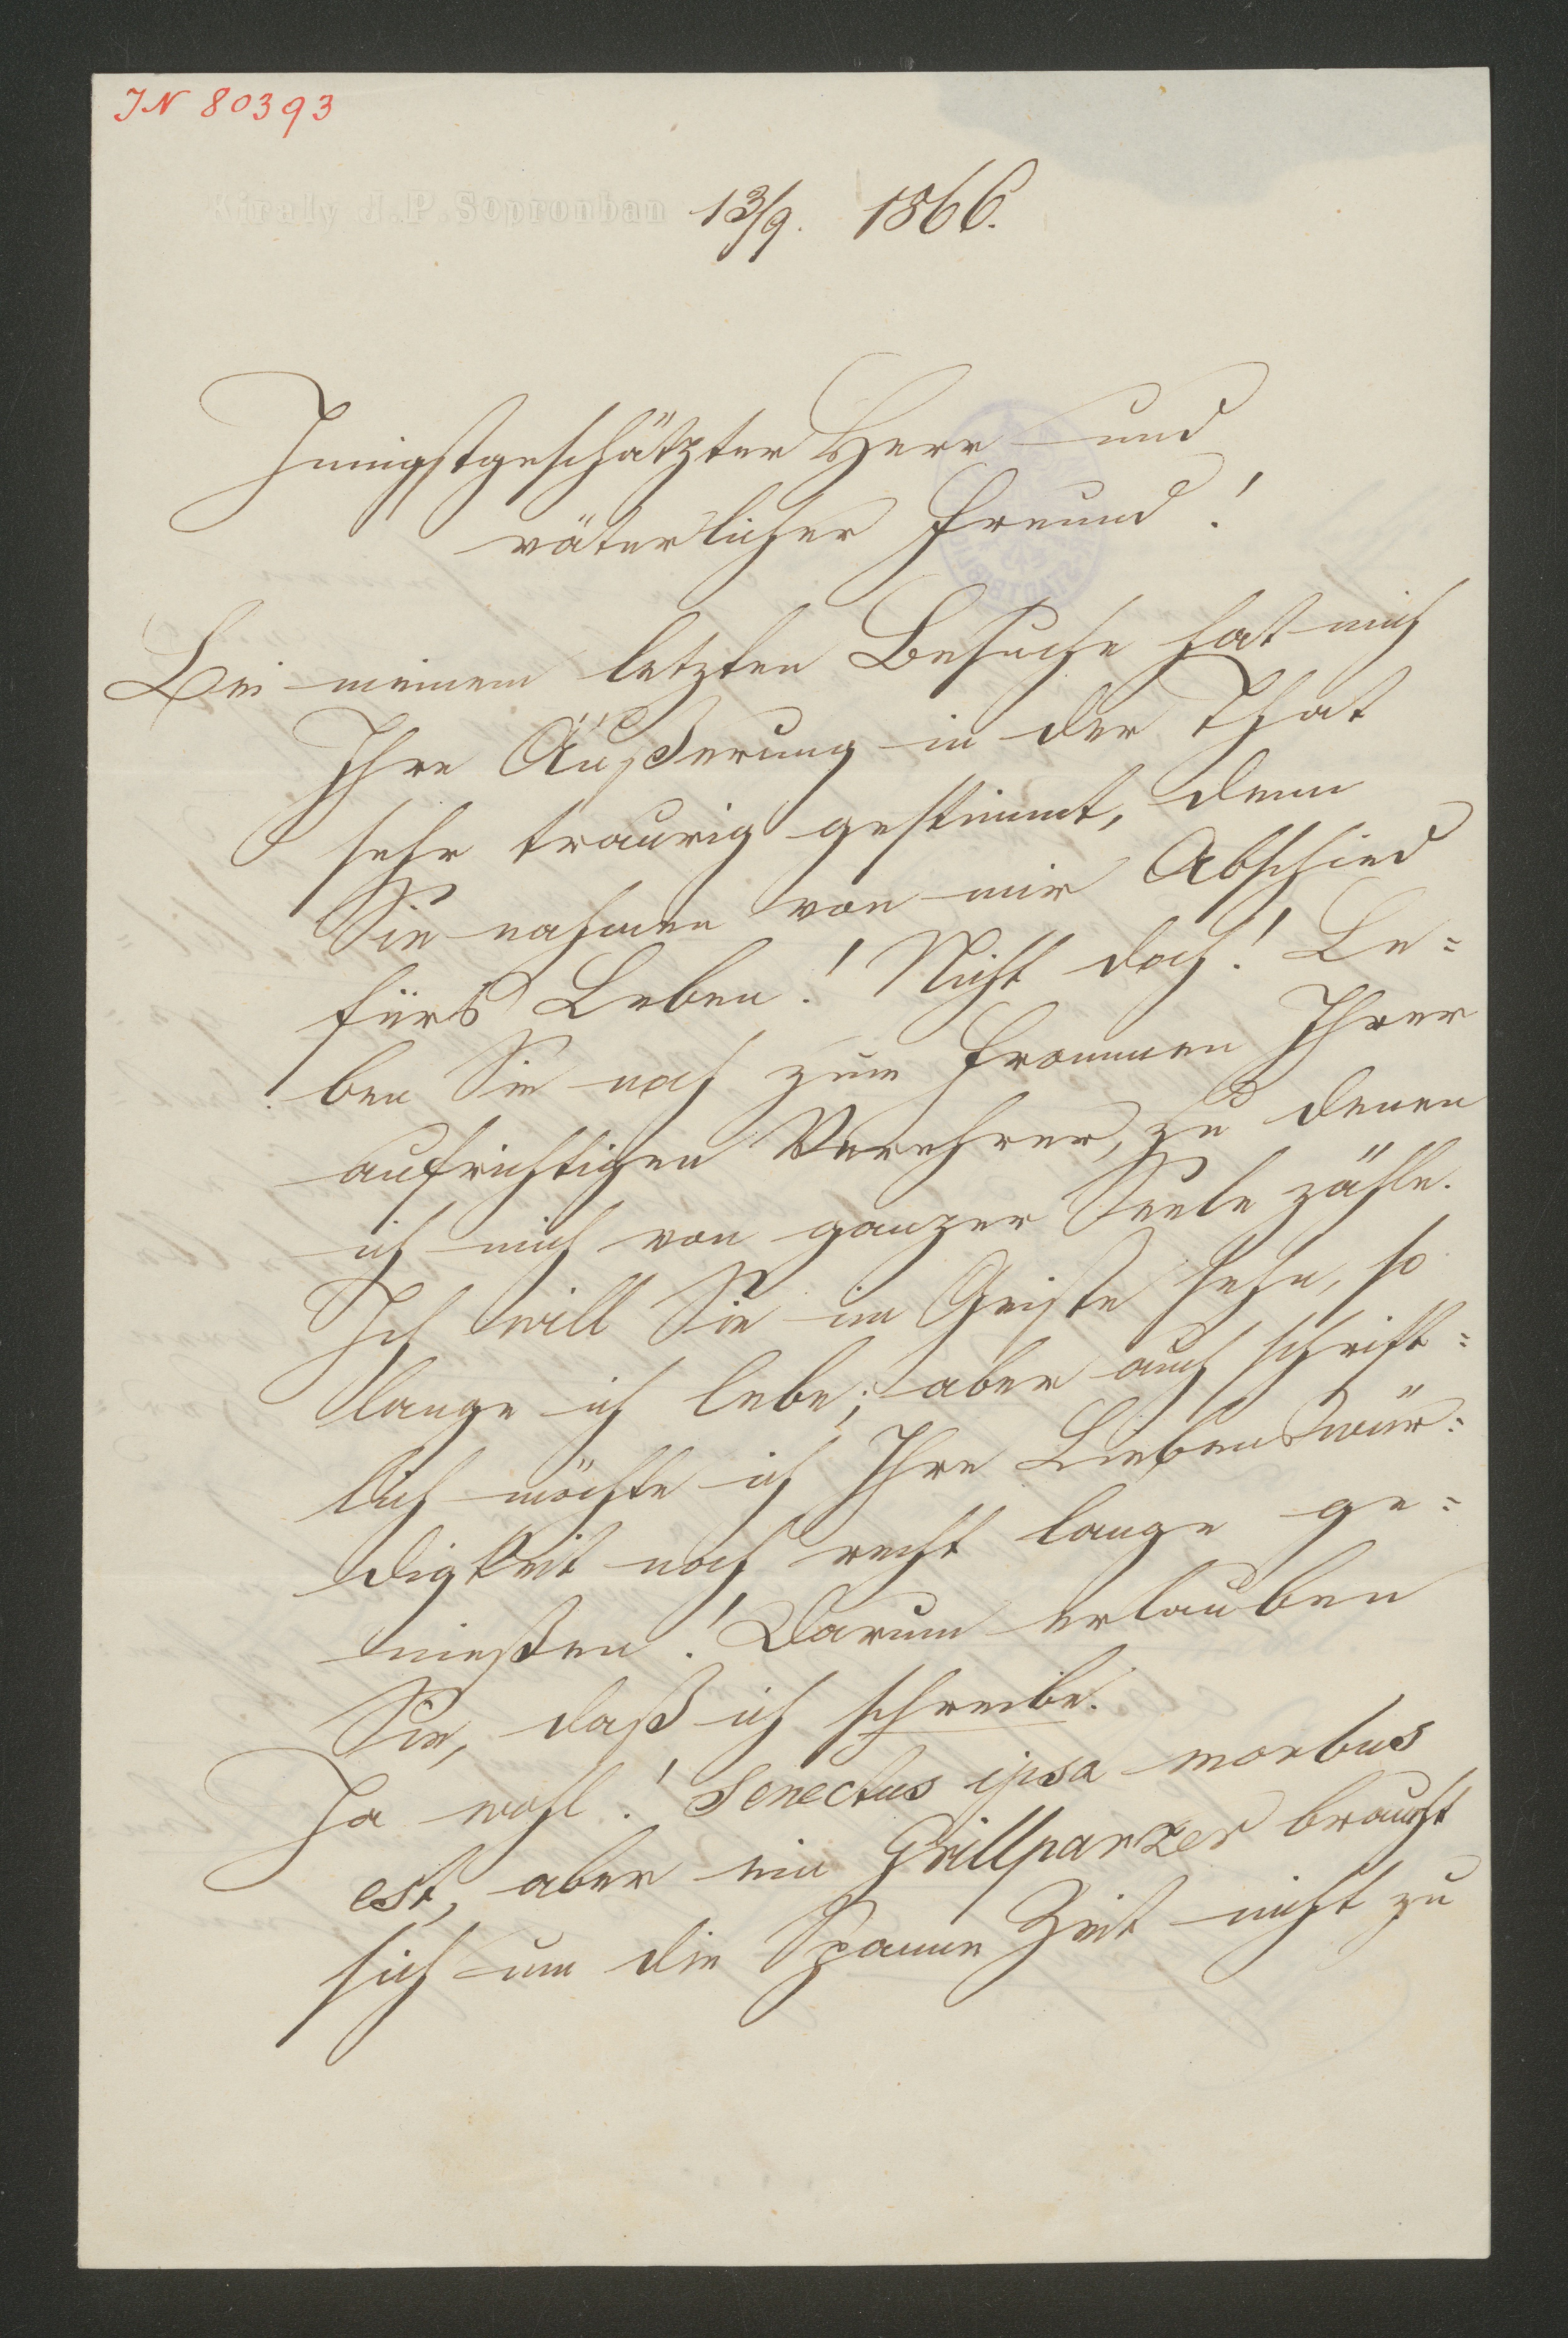 IN 80393
Kiraly J. P. Sopronban 13/9. 1866.
Innigstgeschätzter Herr und
väterlicher Freund!
Bei meinem letzten Besuche hat mich
Ihre Äußerung in der That
sehr traurig gestimmt, denn
Sie nahmen von mir Abschied
fürs Leben! Nicht doch! Le=
ben Sie noch zum Frommen Ihrer
aufrichtigen Verehrer, zu denen
ich mich von ganzer Seele zähle.
Ich will Sie im Geiste sehn, so
lange ich lebe; aber auch schrift=
lich möchte ich Ihre Liebenswür=
digkeit noch recht lange ge=
nießen! Darum erlauben
Sie, daß ich schreibe.
Ja wohl! Senectus ipsa morbus
est, aber ein Grillparzer braucht
sich um die Spanne Zeit nicht zu